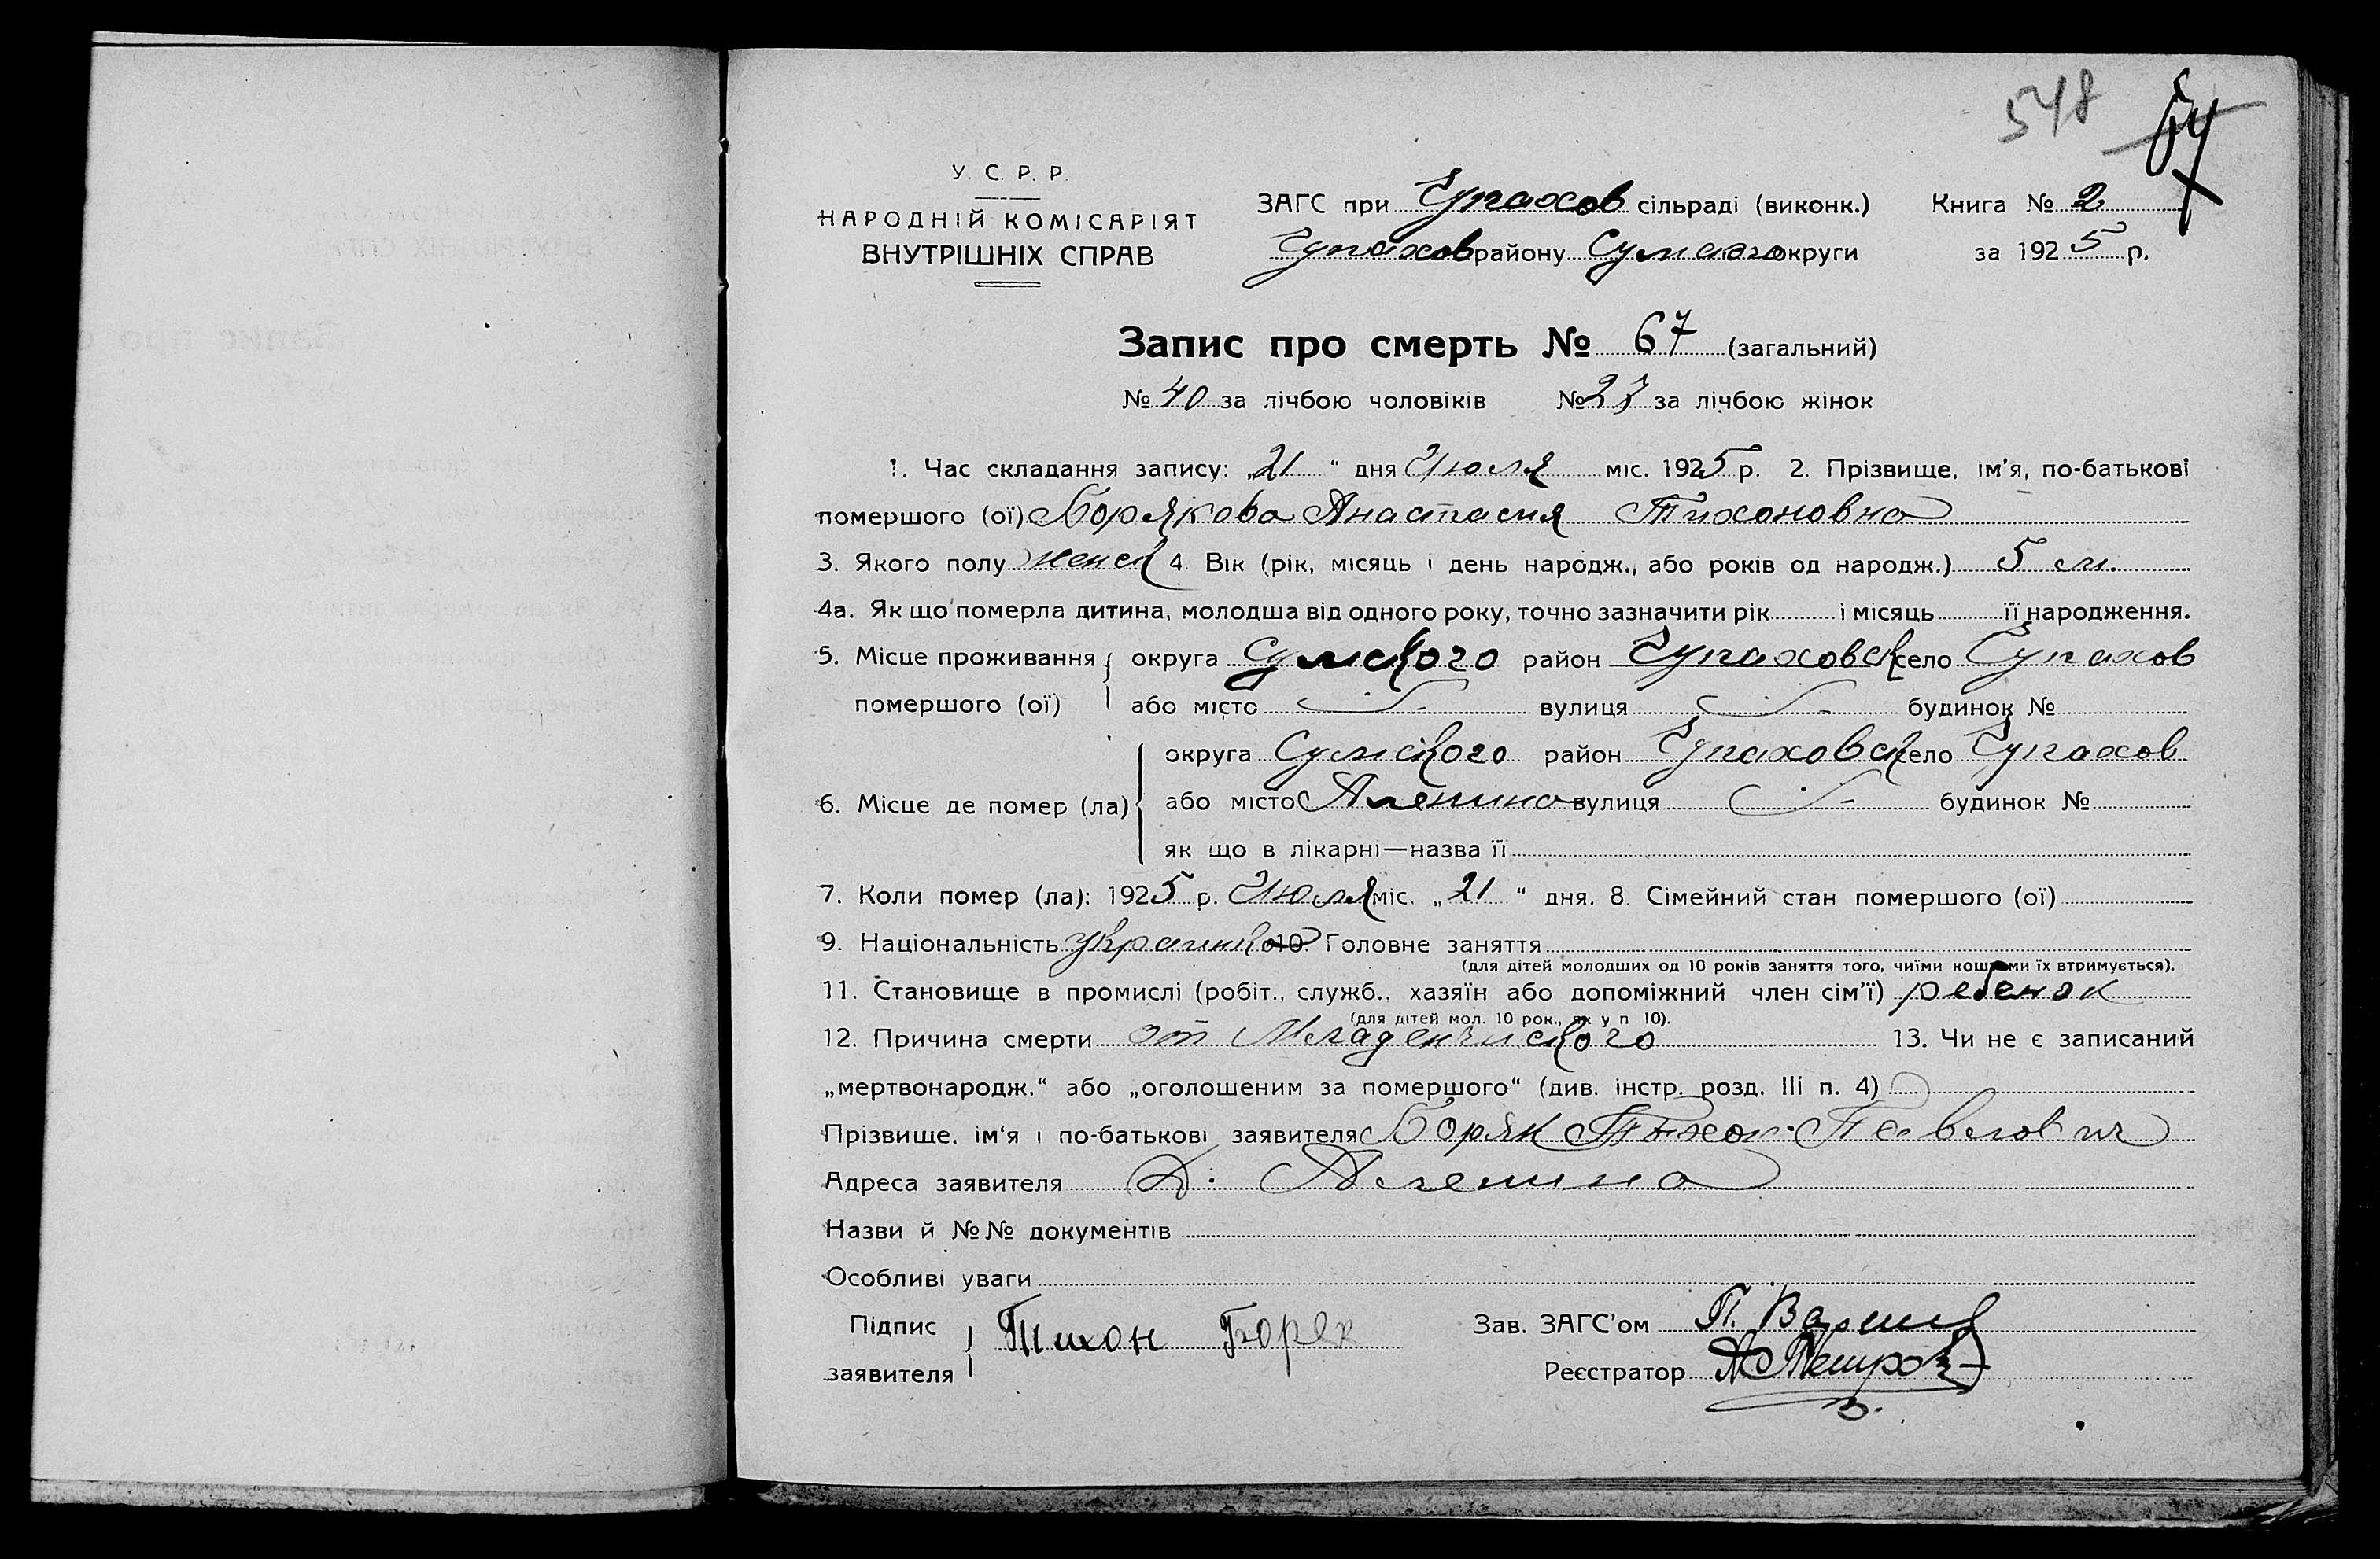 548 54
У. С. Р. Р.
НАРОДНІЙ КОМІСАРІЯТ
ВНУТРІШНІХ СПРАВ
ЗАГС при Чупахов сільраді (виконк.) Книга № 2
Чупахов району Сумского округи за 1925 р.
Запис про смерть № 67 (загальний)
№ 40 за лічбою чоловіків № 27 за лічбою жінок
1. Час складання запису: „21“ дня Июля міс. 1925 р. 2. Прізвище, ім'я, по-батькові
помершого (ої) Борякова Анастасия Тихоновна
3. Якого полу женск 4. Вік (рік, місяць і день народж., або років од народж.) 5 м.
4а. Як що померла дитина, молодша від одного року, точно зазначити рік і місяць її народження.
5. Місце проживання округа Сумского район Чупаховск село Чупахов
помершого (ої) або місто вулиця будинок №
округа Сумского район Чупаховск село Чупахов
6. Місце де помер (ла) або місто Алешино вулиця будинок №
як що в лікарні—назва її
7. Коли помер (ла): 1925 р. Июля міс. „21“ дня. 8. Сімейний стан помершого (ої)
9. Національність украинка 10. Головне заняття
(для дітей молодших од 10 років заняття того, чиїми коштами їх втримується).
11. Становище в промислі (робіт., служб., хазяїн або допоміжний член сім'ї) ребенок
(для дітей мол. 10 рок., як у п 10).
12. Причина смерти от Младенческого 13. Чи не є записаний
„мертвонародж.“ або „оголошеним за помершого“ (див. інстр. розд. III п. 4)
Прізвище, ім'я і по-батькові заявителя Боряк Тихон Павлович
Адреса заявителя х. Алешино
Назви й №№ документів
Особливі уваги
Підпис
заявителя Тихон Боряк
Зав. ЗАГС'ом П.
Реєстратор